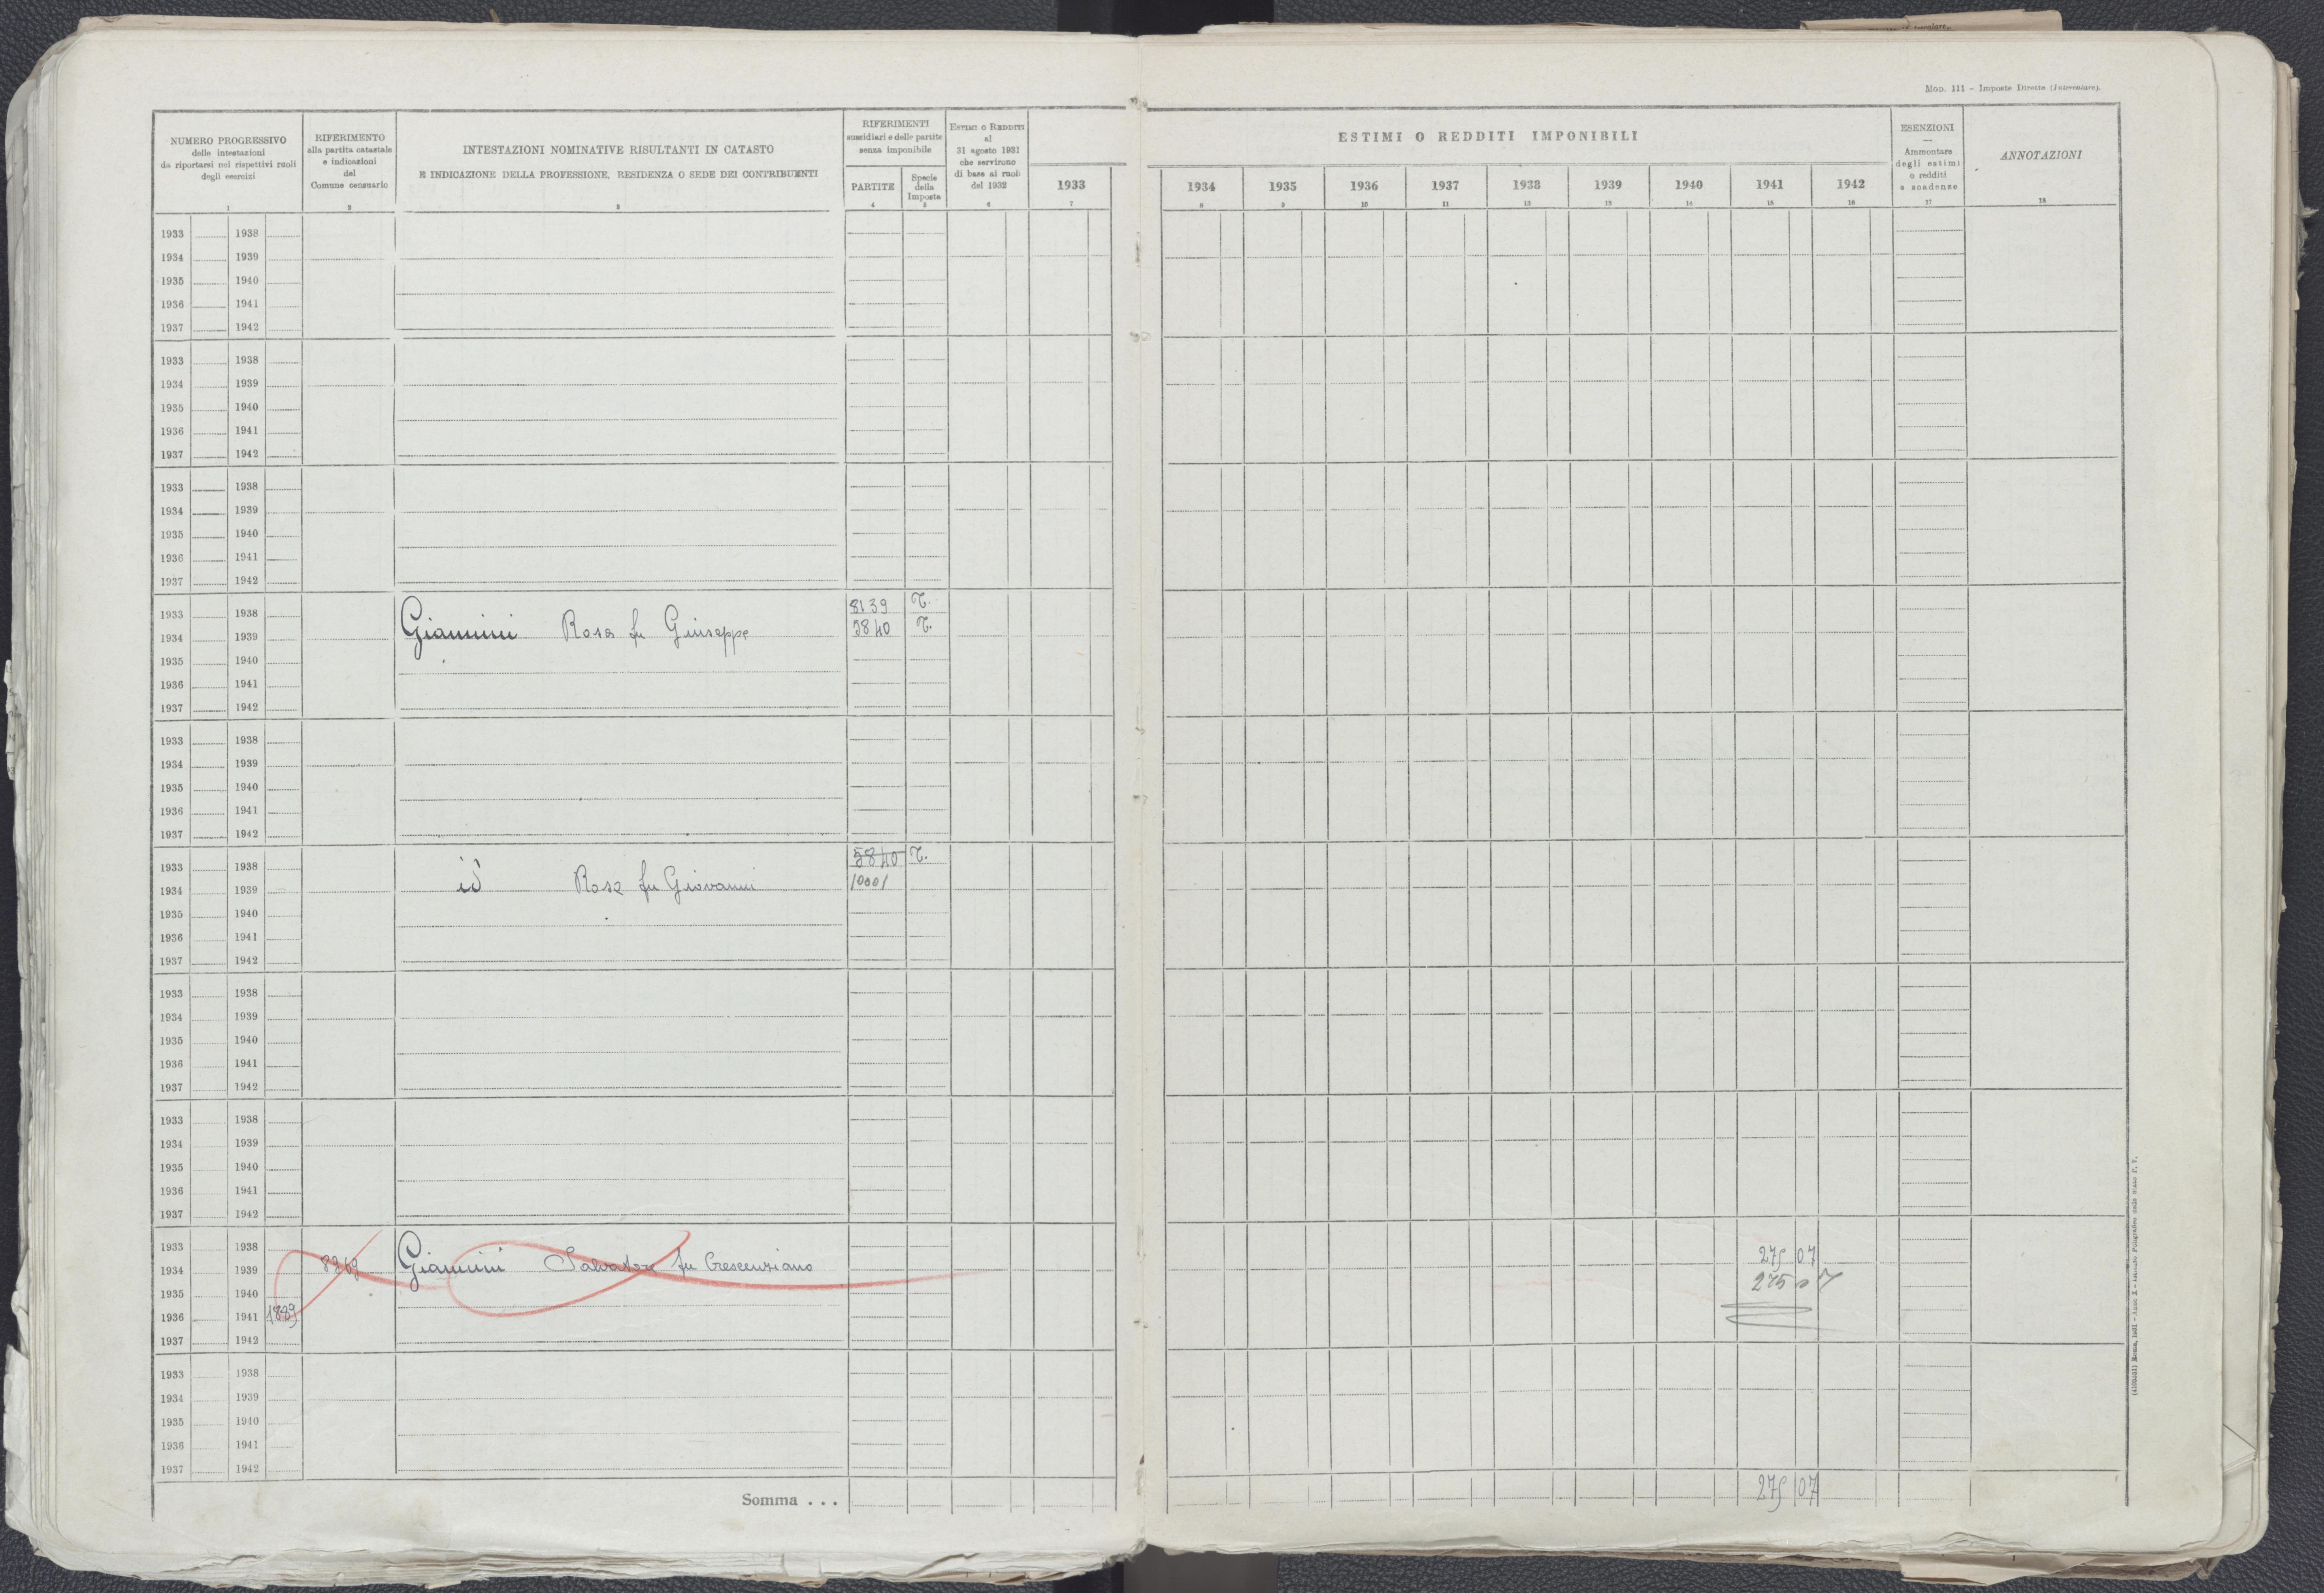 Mod. 111 - Imposte Dirette (Intercalare).
NUMERO PROGRESSIVO
delle intestazioni
da riportarsi nei rispettivi ruoli
degli esercizi
1
RIFERIMENTO
alla partita catastale
e indicazioni
del
Comune censuario
2
INTESTAZIONI NOMINATIVE RISULTANTI IN CATASTO
E INDICAZIONE DELLA PROFESSIONE, RESIDENZA O SEDE DEI CONTRIBUENTI
3
RIFERIMENTI
sussidiari e delle partite
senza imponibile
PARTITE
4
Specie
della
Imposta
5
Estimi o Redditi
al
31 agosto 1931
che servirono
di base ai ruoli
del 1932
6
1933
7
ESTIMI O REDDITI IMPONIBILI
1934 1935 1936 1937 1938 1939 1940 1941 1942
8 9 10 11 12 13 14 15 16
ESENZIONI
Ammontare
degli estimi
o redditi
e scadenze
17
ANNOTAZIONI
18
1933 1938
1934 1939
1935 1940
1936 1941
1937 1942
1933 1938
1934 1939
1935 1940
1936 1941
1937 1942
1933 1938
1934 1939
1935 1940
1936 1941
1937 1942
1933 1938 8139 T.
1934 1939 Giannini Rosa fu Giuseppe 5840 T.
1935 1940
1936 1941
1937 1942
1933 1938
1934 1939
1935 1940
1936 1941
1937 1942
1933 1938 5840 T.
1934 1939 id Rosa fu Giovanni 10001
1935 1940
1936 1941
1937 1942
1933 1938
1934 1939
1935 1940
1936 1941
1937 1942
1933 1938
1934 1939
1935 1940
1936 1941
1937 1942
1933 1938 275 07
1934 1939 Giannini Salvatore fu Crescenziano 275 07
1935 1940
1936 1941 1889
1937 1942
1933 1938
1934 1939
1935 1940
1936 1941
1937 1942
Somma . . . 275 07